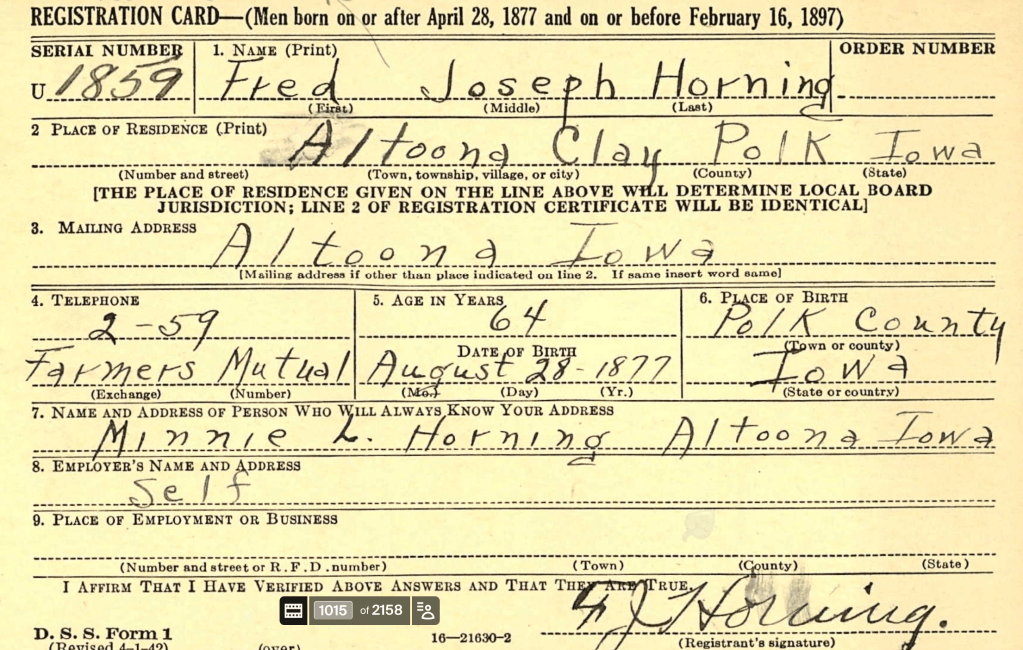 REGISTRATION CARD—(Men born on or after April 28, 1877 and on or before February 16, 1897)
SERIAL NUMBER 1. NAME (Print) ORDER NUMBER
U 1859 Fred Joseph Horning
(First) (Middle) (Last)
2 PLACE OF RESIDENCE (Print)
Altoona Clay Polk Iowa
(Number and street) (Town, township, village, or city) (County) (State)
[THE PLACE OF RESIDENCE GIVEN ON THE LINE ABOVE WILL DETERMINE LOCAL BOARD
JURISDICTION; LINE 2 OF REGISTRATION CERTIFICATE WILL BE IDENTICAL]
3. MAILING ADDRESS
Altoona Iowa
[Mailing address if other than place indicated on line 2. If same insert word same]
4. TELEPHONE 5. AGE IN YEARS 6. PLACE OF BIRTH
2-59 64 Polk County
DATE OF BIRTH (Town or county)
Farmers Mutual August 28-1877 Iowa
(Exchange) (Number) (Mo.) (Day) (Yr.) (State or country)
7. NAME AND ADDRESS OF PERSON WHO WILL ALWAYS KNOW YOUR ADDRESS
Minnie L. Horning Altoona Iowa
8. EMPLOYER'S NAME AND ADDRESS
Self
9. PLACE OF EMPLOYMENT OR BUSINESS
(Number and street or R.F.D. number) (Town) (County) (State)
I AFFIRM THAT I HAVE VERIFIED ABOVE ANSWERS AND THAT THEY ARE TRUE.
1015 of 2158
F J Horning.
D. S. S. Form 1
(Revised 4-1-42) (over) 16—21630-2 (Registrant's signature)